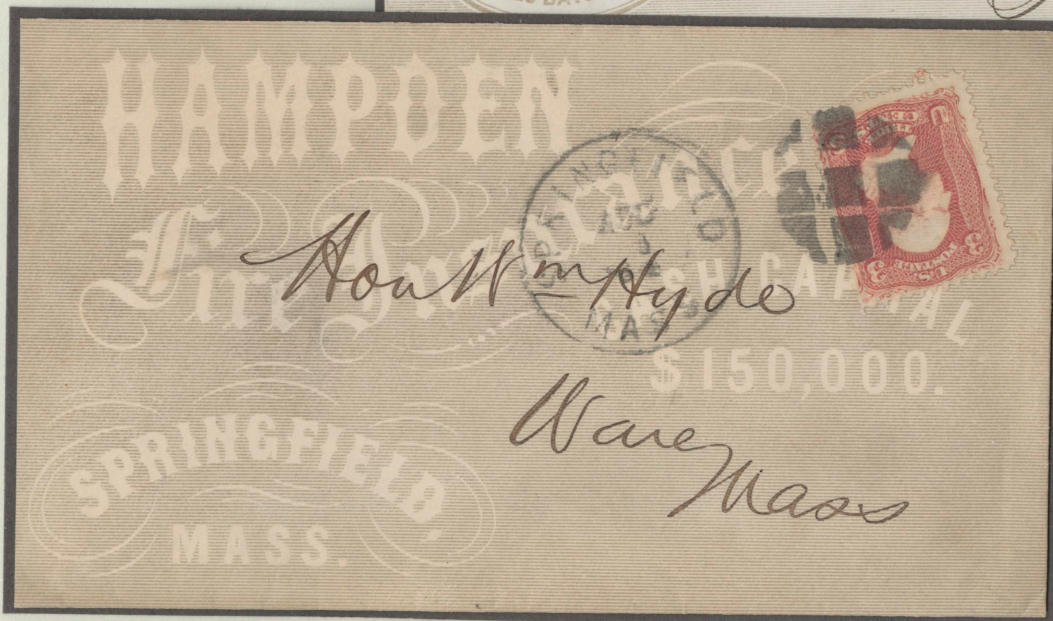 HAMPDEN
Fire Insurance Co
CASH CAPITAL
$150,000.
SPRINGFIELD,
MASS.
SPRINGFIELD
AUG
MASS
U S
POSTAGE
3 3
Hon Wm Hyde
Ware
Mass